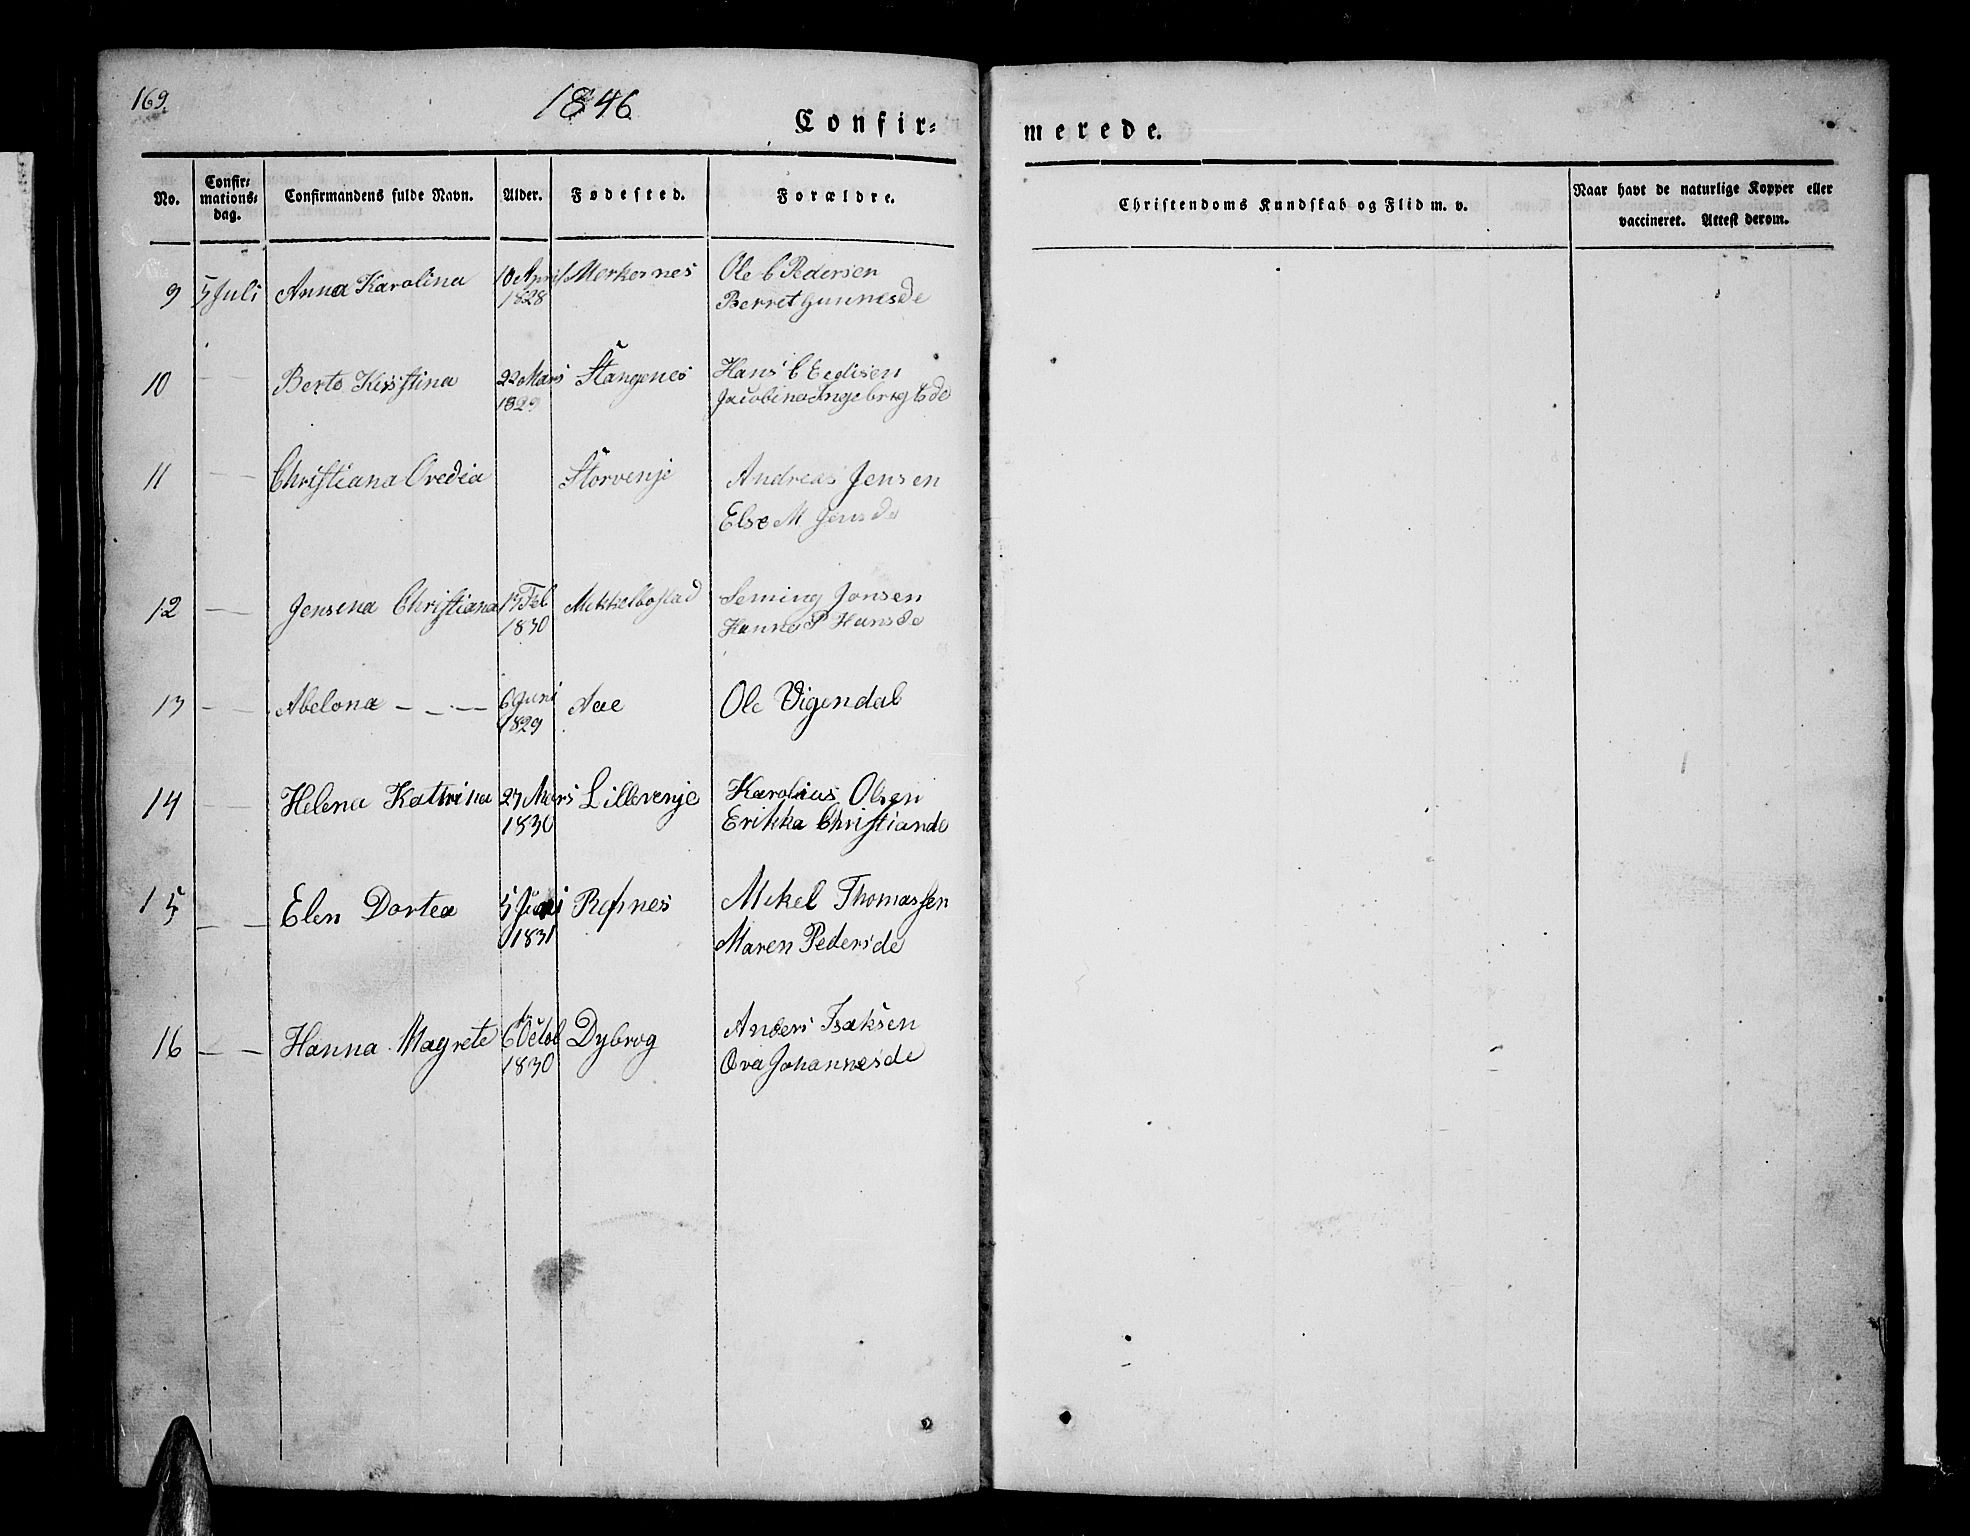 169.
1846
Confir-
merede.
No.
Confir-
mations-
dag.
Confirmandens fulde Navn.
Alder.
Fødested.
Forældre.
Christendoms Kundskab og Flid m. v.
Naar havt de naturlige Kopper eller
vaccineret. Attest derom.
9 5 Juli Anna Karolina 10 April Merkesnes Ole C Pedersen
1828 Berret Gunnesde
10 — — Berto Kristina 22 Mars Stangenes Hans C Eedisen
1829 Jacobina Ingebrigtsde
11 — — Christiana Ovedia Storvenje Andreas Jensen
Else M Jensde
12 — — Jensena Christiana 17 Feb Mikkelbostad Seming Jonsen
1830 Hanna P Hansde
13 — — Abelona — — — 6 Juni Aae Ole Vigendal
1829
14 — — Helena Katrina 27 Mars Lillevenje Karolius Olsen
1830 Erikka Christiande
15 — — Elen Dortea 5 Juni Refsnes Mekel Thomassen
1831 Maren Pedersde
16 — — Hanna Magrete 6 Octob Dybrog Anders Isaksen
1830 Ova Johannesde